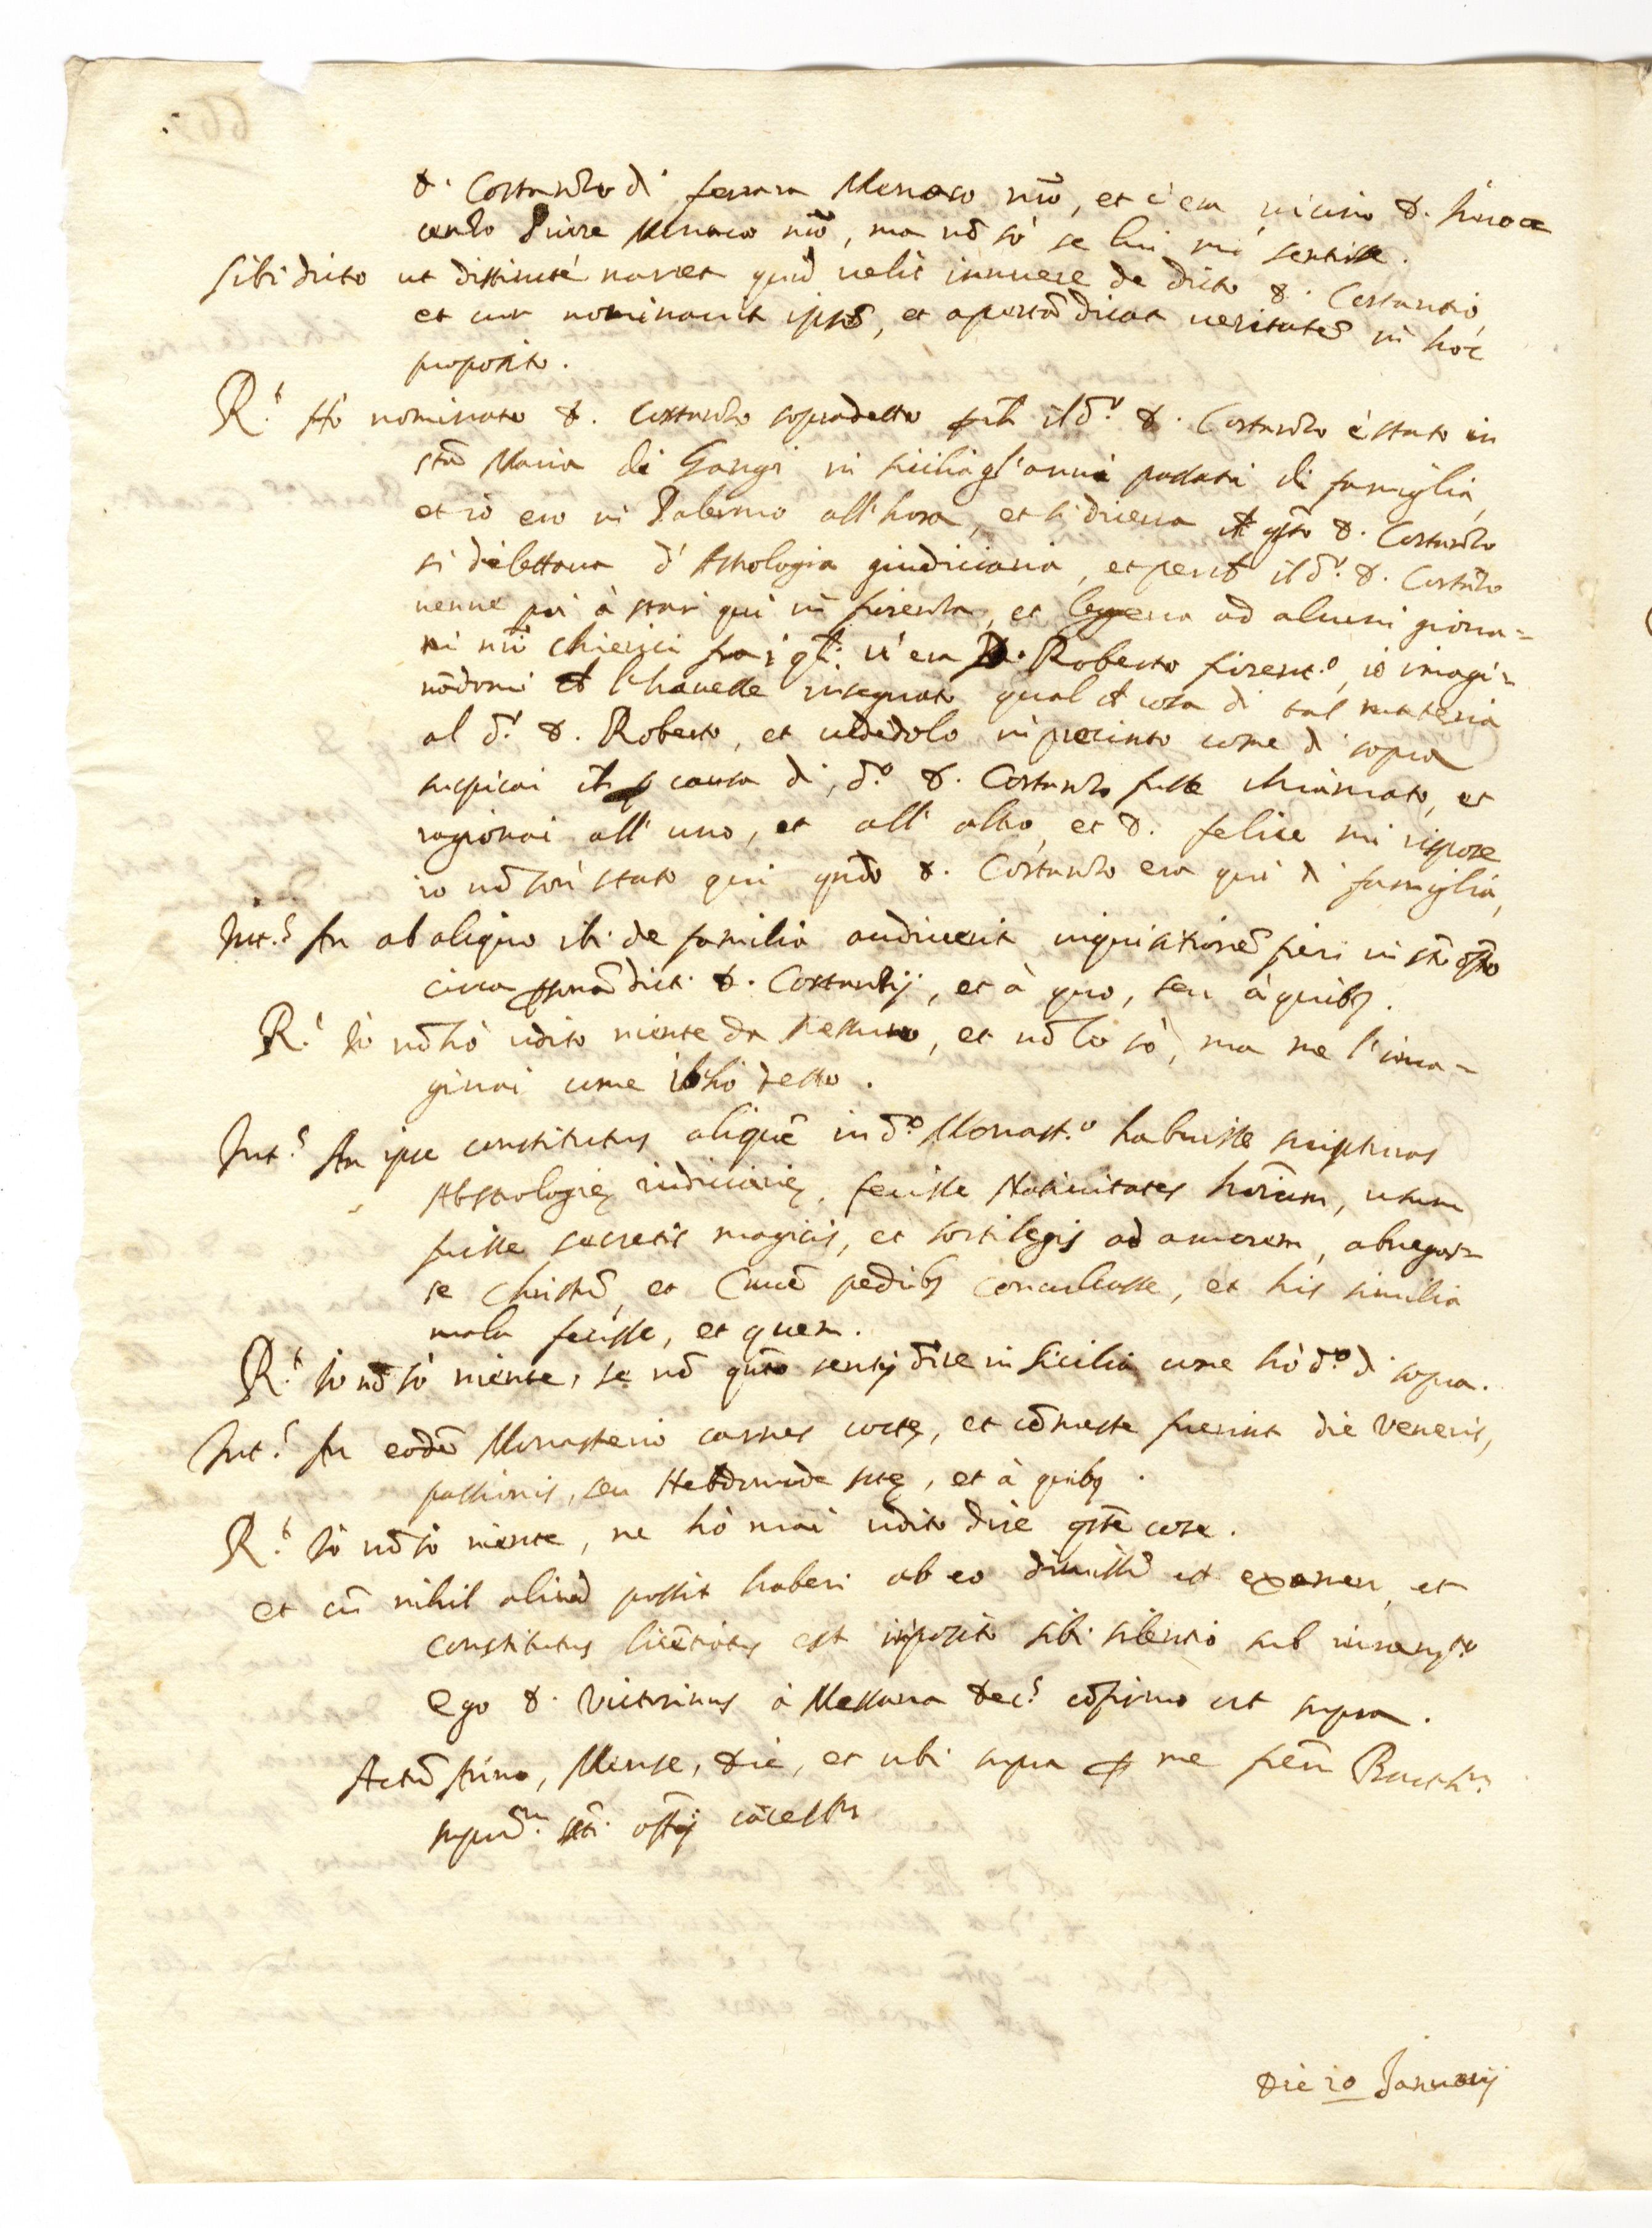 D. Costanzo di ferrara Monaco nrõ, et c'era vicino D. Innoce
centio Monaco nrõ, ma nõ sò se lui mi sentisse.
Sibi dicto ut distincté narret quid uelit innuere de dicto D. Costantio,
et cur nominauit ipsũ, et apertã dicat ueritatẽ in hoc
proposito.
R.t Hò nominato D. Costanzo sopradetto il d.o D. Costanzo è stato in
stã Maria di Gangi in Sicilia gl'anni passati di famiglia,
et io ero in Palermo all'hora, et si diceua ch qsto D. Costanzo
si dilettaua d'Astrologia giudiciaria, et perch il d.o D. Costãzo
uenne poi à star qui in fiorenza, et leggeua ad alcuni gioua=
ni nrĩ chierici fra i qli u'era D. Roberto fiorent.o, io imagi=
nãdomi ch l'hauesse insegnato qual ch cosa di tal materia
al d.o D. Roberto, et uedẽdolo in procinto come di sopra
suspicai ch p causa di d.o D. Costanzo fusse chiamato, et
ragionai all'uno, et all'altro, et D. felice mi rispose
io nõ son stato qui qñdo D. Costanzo era qui di famiglia,
Int.s An ab aliquo ibi de familia audiuerit inquisitionẽ fieri in stõ offõ
circa psonã dicti D. Costantij, et à quo, seu à quibus.
R.t Io nõ hò udito niente da nessuno, et nõ lo sò, ma me l'ima=
ginai come hò detto.
Int.s An ipse constitutus aliquẽ in d.o Monast.o habuisse scripturas
Abstrologię iudiciarię, fecisse Natiuitates hoĩum, usum
fuisse secretis magicis, et sortilegijs ad amorem, abnegas=
se Christũ, et Crucẽ pedibus conculcasse, et his similia
mala fecisse, et quem.
R.t Io nõ sò niente, se nõ qñto sentij dire in Sicilia come hò d.o di sopra.
Int.s An eodẽ Monasterio carnes coctę, et cõmestę fuerint die Veneris,
passionis, seu Hebdomada stę, et à quibus.
R.t Io nõ sò niente, ne hò mai udito dire qste cose.
et cũ nihil aliud possit haberi ab eo dimissũ est examen, et
constitutus licẽtiatus est iñposito sibi silentio sub iuram.to
Ego D. Victorinus à Messana Dec.s cõfirmo ut supra.
Actũ Anno, Mense, Die, et ubi supra p me
supred. stĩ offĩj cãcell.m
Die 10 Januarij